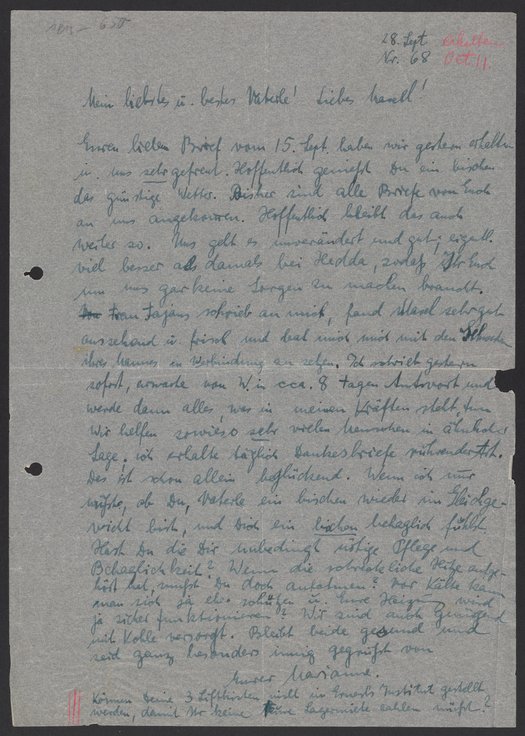 28. Sept erhalten
Nr. 68 Oct 11.
Mein liebstes u. bestes Vaterle! Liebes Maxell!
Euren lieben Brief vom 15. Sept. haben wir gestern erhalten
u. uns sehr gefreut. Hoffentlich genießt Du ein bischen
das günstige Wetter. Bisher sind alle Briefe von Euch
an uns angekommen. Hoffentlich bleibt das auch
weiter so. Uns geht es unverändert und gut, eigentl.
viel besser als damals bei Hedda, sodaß Ihr Euch
um uns gar keine Sorgen zu machen braucht.
Frau Fajans schrieb an mich, fand Maxl sehr gut
aussehend u. frisch und bat mich mich mit den
ihres Mannes in Verbindung zu setzen. Ich schrieb gestern
sofort, erwarte von W. in cca. 8 Tagen Antwort und
werde dann alles, was in meinen Kräften steht, tun.
Wir helfen sowieso sehr vielen Menschen in ähnlich.
Lage; ich erhalte täglich Dankesbriefe rührendster Art.
Das ist schon allein beglückend. Wenn ich nur
wüßte, ob Du, Vaterle ein bischen wieder im Gleichge-
wicht bist, und Dich ein bischen behaglich fühlst.
Hast Du die Dir unbedingt nötige Pflege und
Behaglichkeit? Wenn die schreckliche Hitze aufge-
hört hat, mußt Du doch aufatmen? Vor Kälte kann
man sich ja eher schützen u. Eure Heizg wird
ja sicher funktionieren? Wir sind auch genügend
mit Kohle versorgt. Bleibt beide gesund und
seid ganz besonders innig gegrüßt von
Eurer Marianne.
Können Deine 3 Liftkisten nicht in Ernests Institut gestellt
werden, damit Ihr keine Lagermiete zahlen müßt?